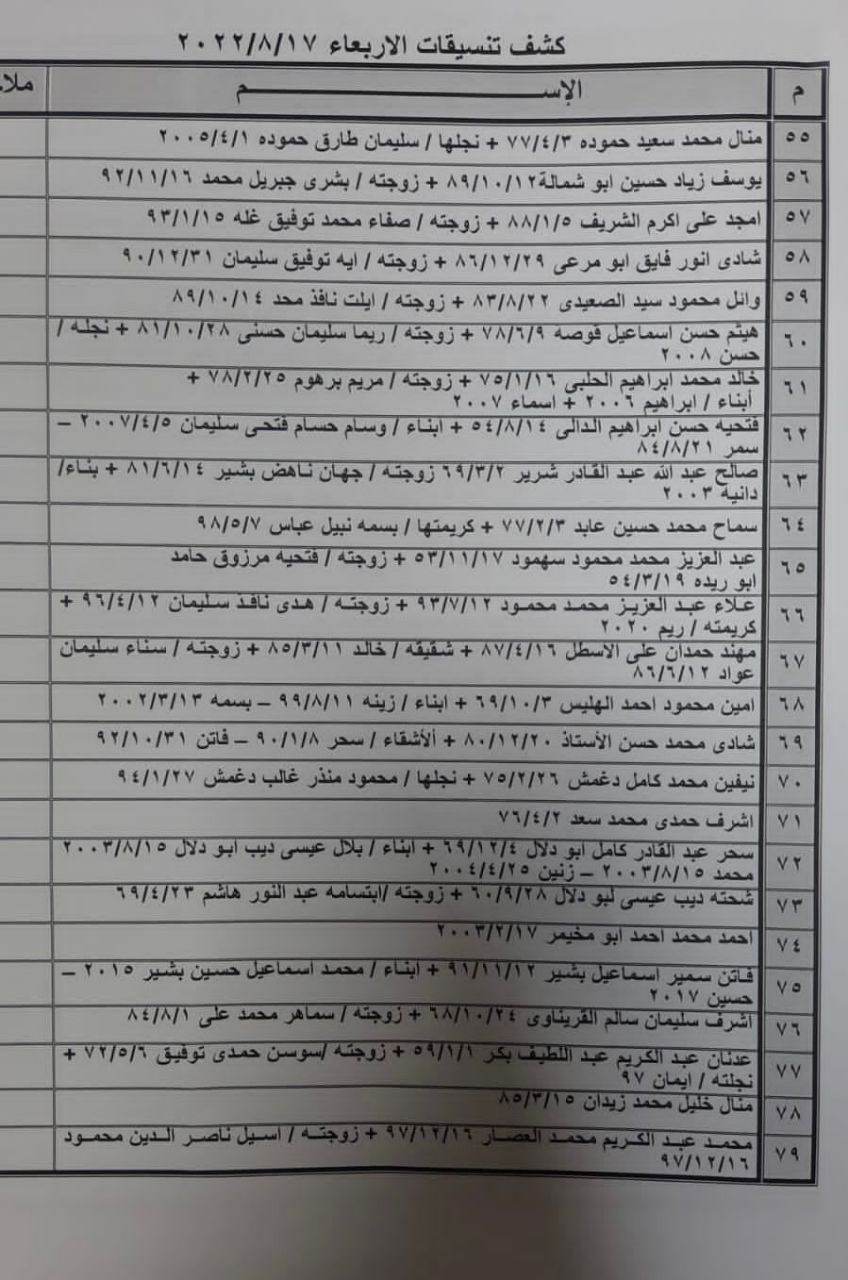 كشف تنسيقات الاربعاء ٢٠٢٢/٨/١٧
م الإســـــــــــــــــم ملا
٥٥ منال محمد سعيد حموده ٧٧/٤/٣ + نجلها / سليمان طارق حموده ٢٠٠٥/٤/١
٥٦ يوسف زياد حسين ابو شمالة ٨٩/١٠/١٢ + زوجته / بشرى جبريل محمد ٩٢/١١/١٦
٥٧ امجد على اكرم الشريف ٨٨/١/٥ + زوجته / صفاء محمد توفيق غله ٩٣/١/١٥
٥٨ شادى انور فايق ابو مرعى ٨٦/١٢/٢٩ + زوجته / ايه توفيق سليمان ٩٠/١٢/٣١
٥٩ وائل محمود سيد الصعيدى ٨٣/٨/٢٢ + زوجته / ايلت نافذ محد ٨٩/١٠/١٤
٦٠ هيثم حسن اسماعيل قوصه ٧٨/٦/٩ + زوجته / ريما سليمان حسنى ٨١/١٠/٢٨ + نجله /
حسن ٢٠٠٨
٦١ خالد محمد ابراهيم الحلبى ٧٥/١/١٦ + زوجته / مريم برهوم ٧٨/٢/٢٥ +
أبناء / ابراهيم ٢٠٠٦ + اسماء ٢٠٠٧
٦٢ فتحيه حسن ابراهيم الدالى ٥٤/٨/١٤ + ابناء / وسام حسام فتحى سليمان ٢٠٠٧/٤/٥ –
سمر ٨٤/٨/٢١
٦٣ صالح عبد الله عبد القادر شرير ٦٩/٣/٢ زوجته / جهان ناهض بشير ٨١/٦/١٤ + بناء/
دانيه ٢٠٠٣
٦٤ سماح محمد حسين عابد ٧٧/٢/٣ + كريمتها / بسمه نبيل عباس ٩٨/٥/٧
٦٥ عبد العزيز محمد محمود سهمود ٥٣/١١/١٧ + زوجته / فتحيه مرزوق حامد
ابو ريده ٥٤/٣/١٩
٦٦ علاء عبد العزيز محمد محمود ٩٣/٧/١٢ + زوجته / هدى نافذ سليمان ٩٦/٤/١٢ +
كريمته / ريم ٢٠٢٠
٦٧ مهند حمدان على الاسطل ٨٧/٤/١٦ + شقيقه / خالد ٨٥/٣/١١ + زوجته / سناء سليمان
عواد ٨٦/٦/١٢
٦٨ امين محمود احمد الهليس ٦٩/١٠/٣ + ابناء / زينه ٩٩/٨/١١ – بسمه ٢٠٠٢/٣/١٣
٦٩ شادى محمد حسن الأستاذ ٨٠/١٢/٢٠ + ألأشقاء / سحر ٩٠/١/٨ – فاتن ٩٢/١٠/٣١
٧٠ نيفين محمد كامل دغمش ٧٥/٢/٢٦ + نجلها / محمود منذر غالب دغمش ٩٤/١/٢٧
٧١ اشرف حمدى محمد سعد ٧٦/٤/٢
٧٢ سحر عبد القادر كامل ابو دلال ٦٩/١٢/٤ + ابناء / بلال عيسى ديب ابو دلال ٢٠٠٣/٨/١٥
محمد ٢٠٠٣/٨/١٥ – زنين ٢٠٠٤/٤/٢٥
٧٣ شحته ديب عيسى لبو دلال ٦٠/٩/٢٨ + زوجته /ابتسامه عبد النور هاشم ٦٩/٤/٢٣
٧٤ احمد محمد احمد ابو مخيمر ٢٠٠٣/٢/١٧
٧٥ فاتن سمير اسماعيل بشير ٩١/١١/١٢ + ابناء / محمد اسماعيل حسين بشير ٢٠١٥ –
حسين ٢٠١٧
٧٦ اشرف سليمان سالم القريناوى ٦٨/١٠/٢٤ + زوجته / سماهر محمد على ٨٤/٨/١
٧٧ عدنان عبد الكريم عبد اللطيف بكر ٥٩/١/١ + زوجته /سوسن حمدى توفيق ٧٢/٥/٦ +
نجلته / ايمان ٩٧
٧٨ منال خليل محمد زيدان ٨٥/٣/١٥
٧٩ محمد عبد الكريم محمد العصار ٩٧/١٢/١٦ + زوجته / اسيل ناصر الدين محمود
٩٧/١٢/١٦